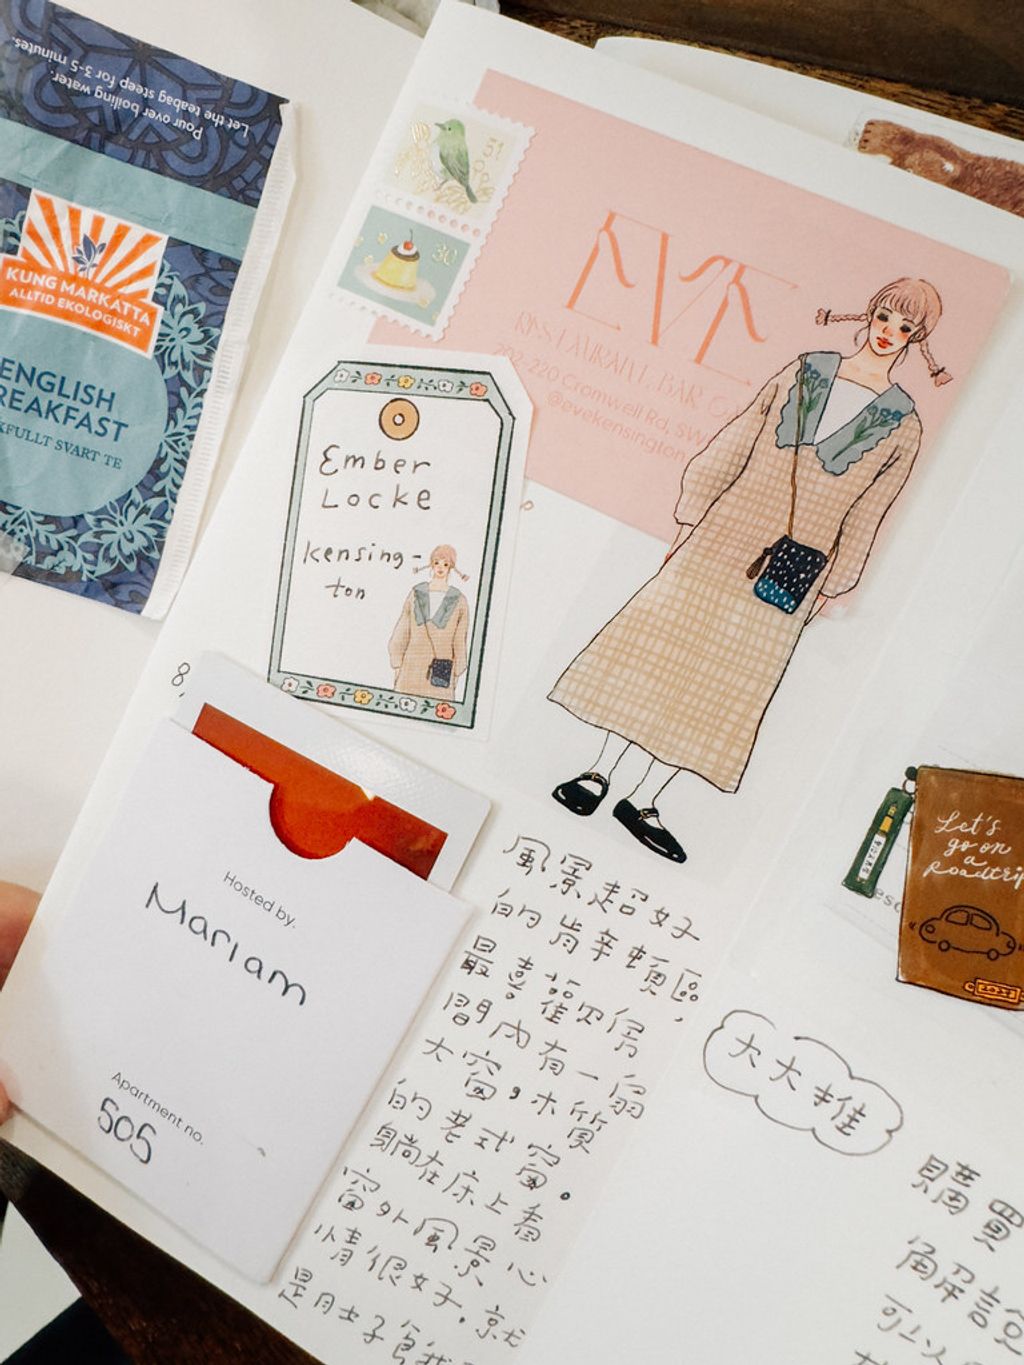 Pour over boiling water.
Let the teabag steep for 3-5 minutes.
KUNG MARKATTA
ALLTID EKOLOGISKT
ENGLISH
BREAKFAST
KFULLT SVART TE
51
30
EVE
RESTAURANT, BAR &
202-220 Cromwell Rd, SW
@evekensington
Ember
Locke
Kensing-
ton
8,
Hosted by.
Mariam
Apartment no.
505
風景超好
的肯辛頓區,
最喜歡房
間內有一扇
大窗,木質
的老式窗。
躺在床上看
窗外風景心
情很好。就
是肚子餓
Let's
go on
a
Roadtrip
大大推
購買
解說
可以